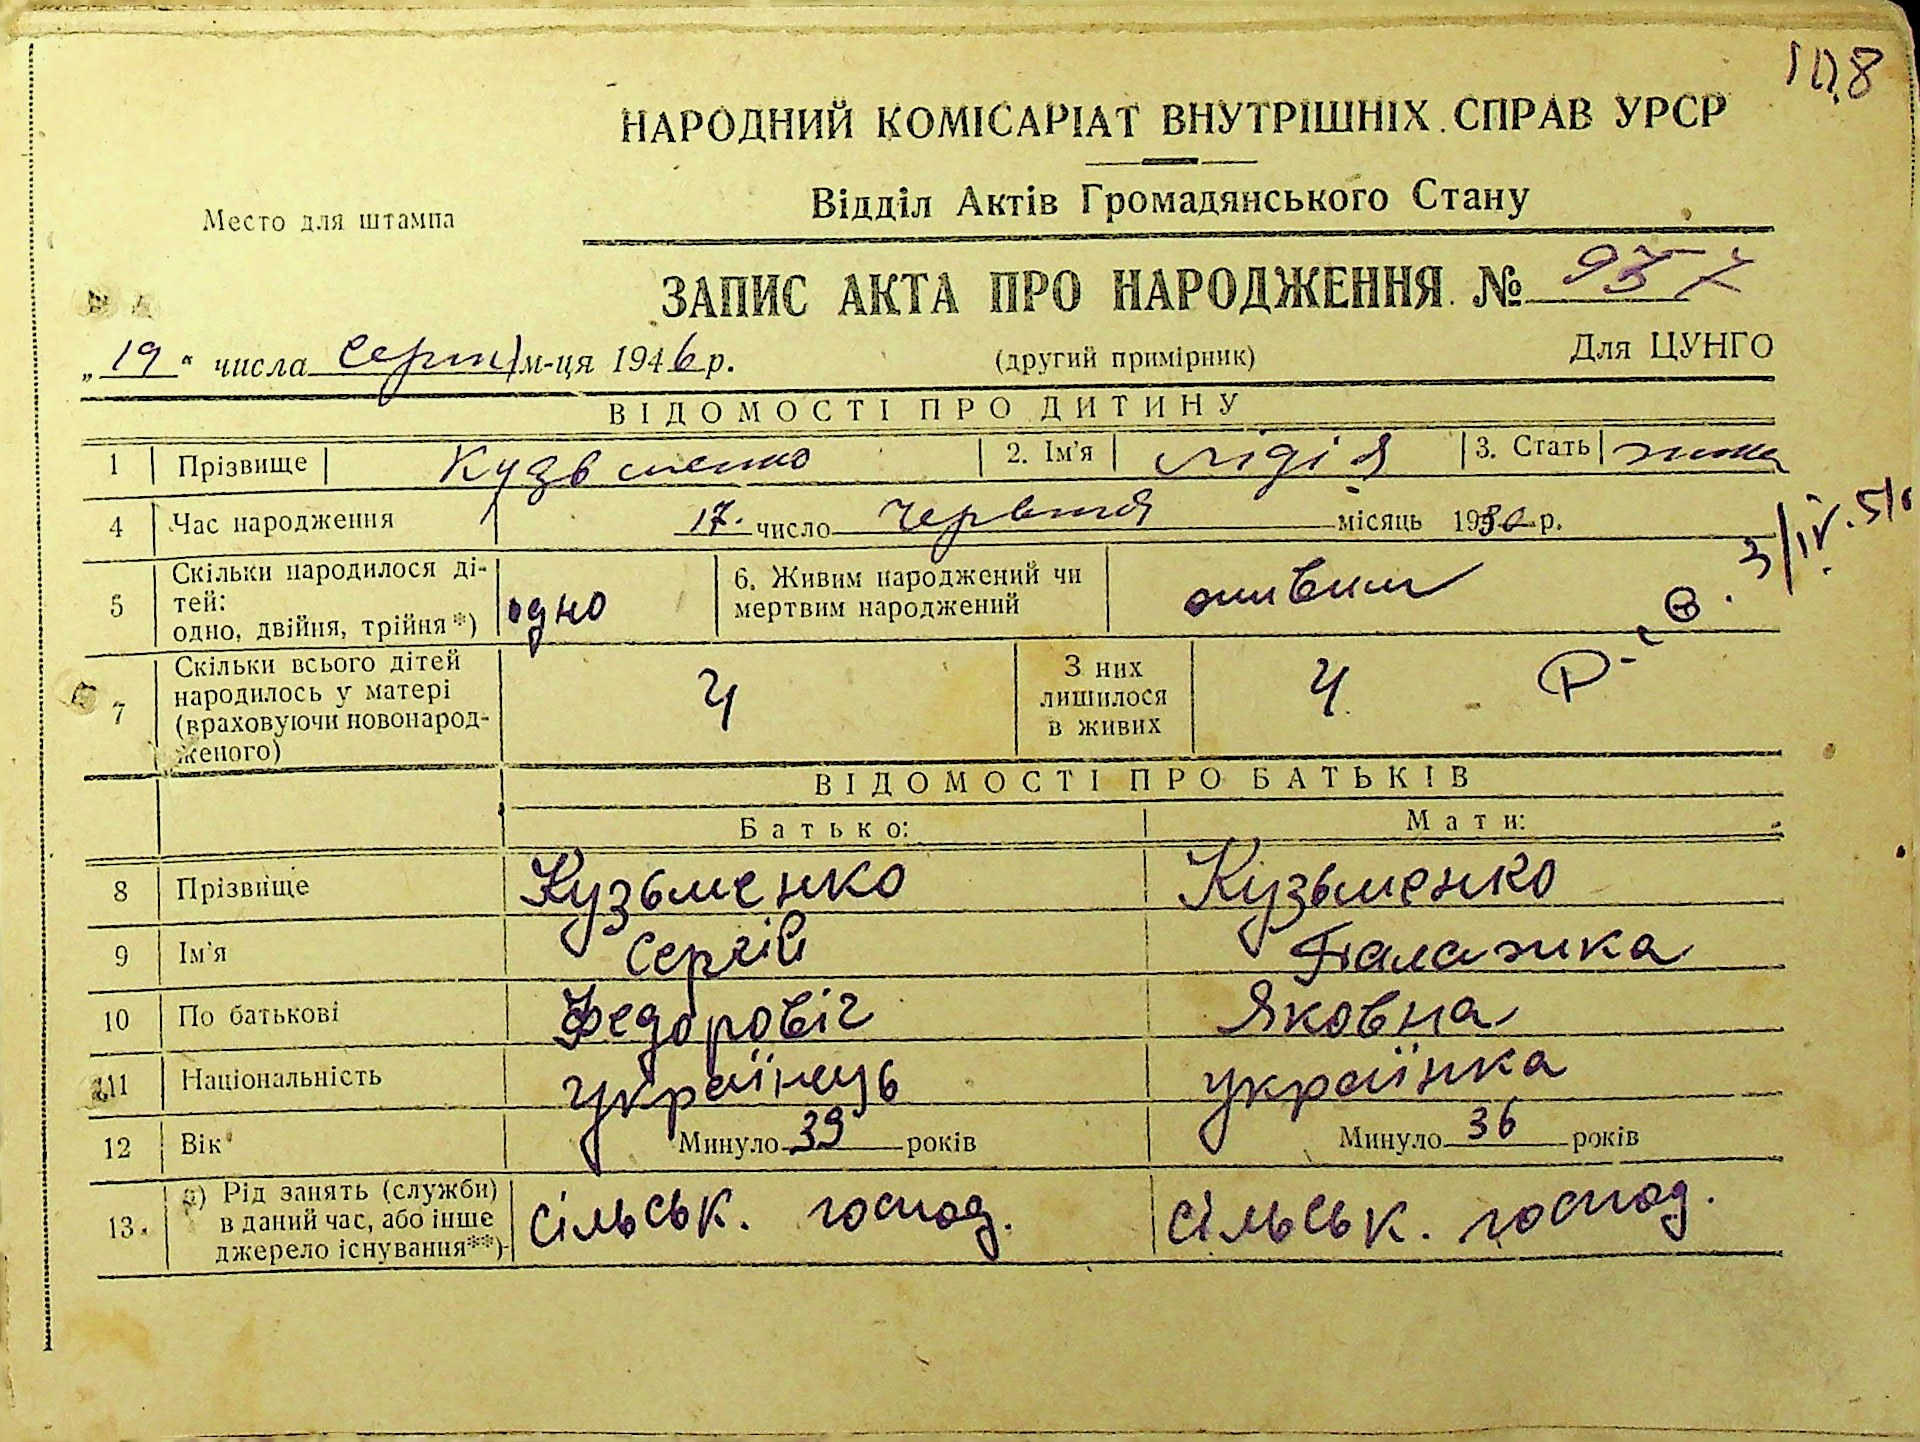 108
НАРОДНИЙ КОМІСАРІАТ ВНУТРІШНІХ СПРАВ УРСР
Відділ Актів Громадянського Стану
Место для штампа
ЗАПИС АКТА ПРО НАРОДЖЕННЯ № 957
„19“ числа Серпн м-ця 1946 р. (другий примірник) Для ЦУНГО
ВІДОМОСТІ ПРО ДИТИНУ
1 Прізвище Кузьменко 2. Ім'я Лідія 3. Стать жіноч
4 Час народження 17. число червня місяць 1930 р.
3/IV.51
5 Скільки народилося ді-
тей:
одно, двійня, трійня*) одно 6. Живим народжений чи
мертвим народжений живим
7 Скільки всього дітей
народилось у матері
(враховуючи новонарод-
женого) 4 З них
лишилося
в живих 4
ВІДОМОСТІ ПРО БАТЬКІВ
Батько: Мати:
8 Прізвище Кузьменко Кузьменко
9 Ім'я Сергій Палажка
10 По батькові Федоровіч Яковна
11 Національність українець українка
12 Вік Минуло 39 років Минуло 36 років
13. а) Рід занять (служби)
в даний час, або інше
джерело існування**) сільськ. господ. сільськ. господ.